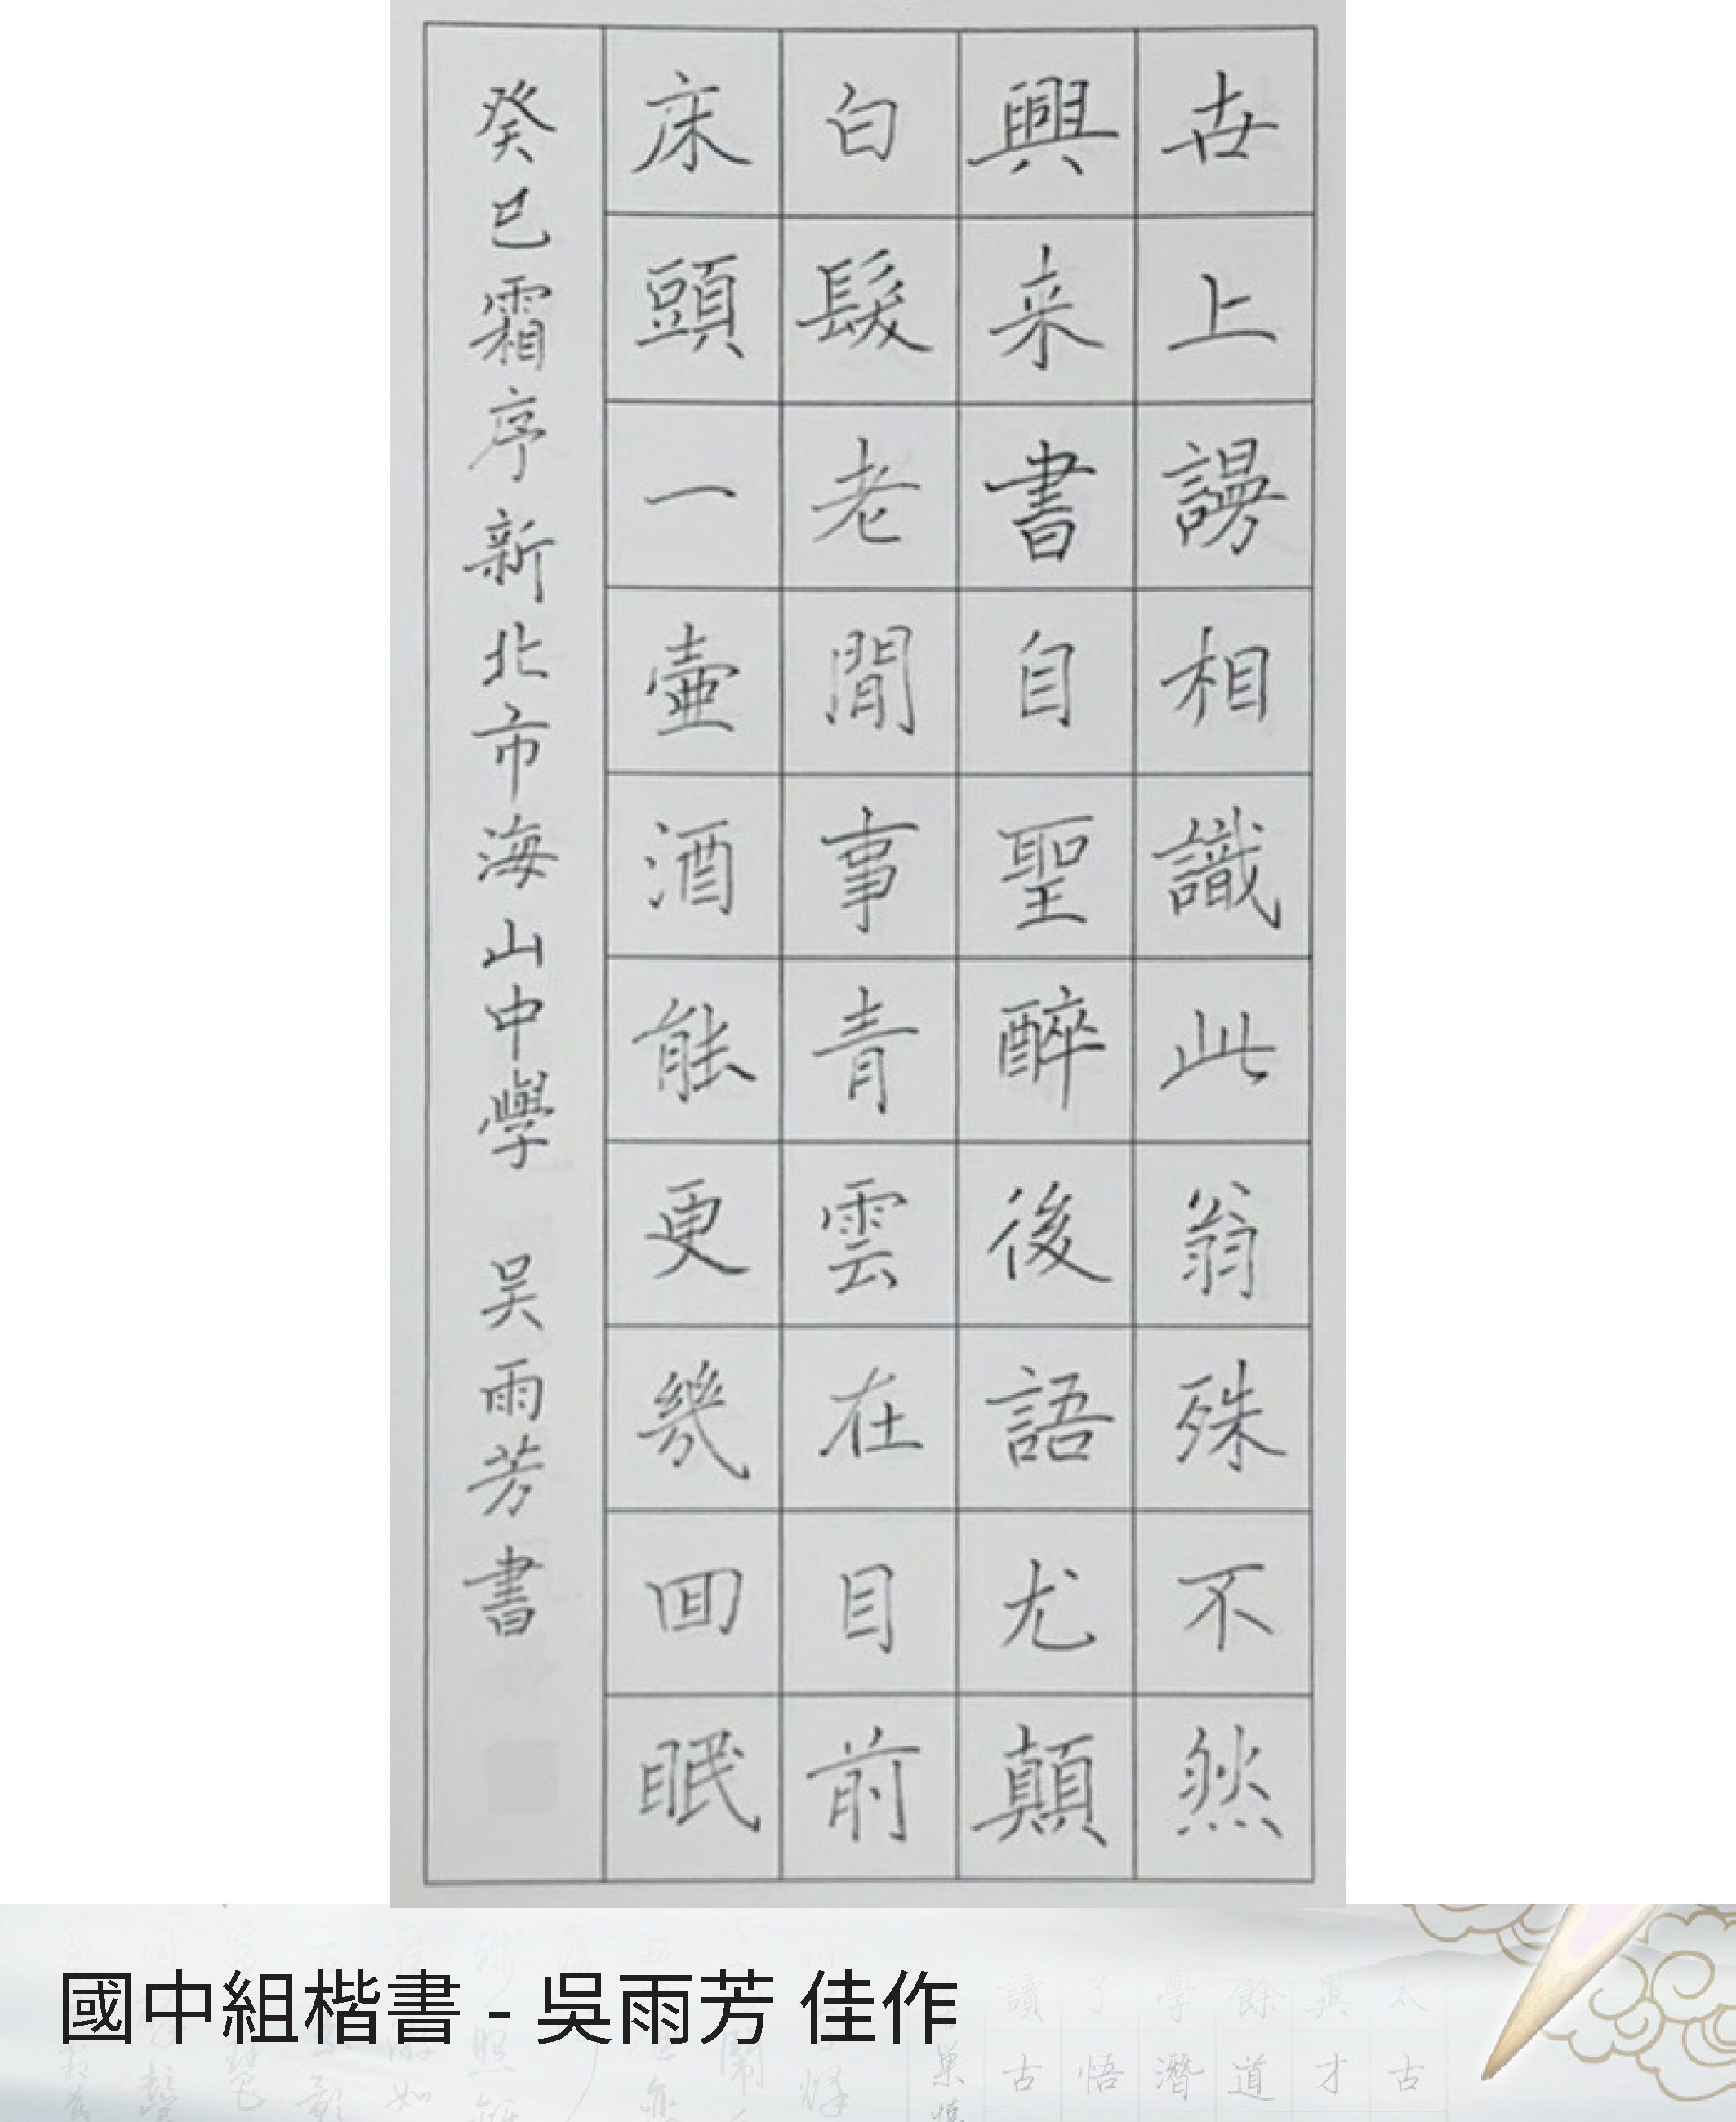 世上謾相識此翁殊不然
興来書自聖醉後語尤顛
白髮老閒事青雲在目前
床頭一壺酒能更幾回眠
癸巳霜序新北市海山中學 吳雨芳書
國中組楷書 - 吳雨芳 佳作
讀了學餘與太
古悟潛道才古